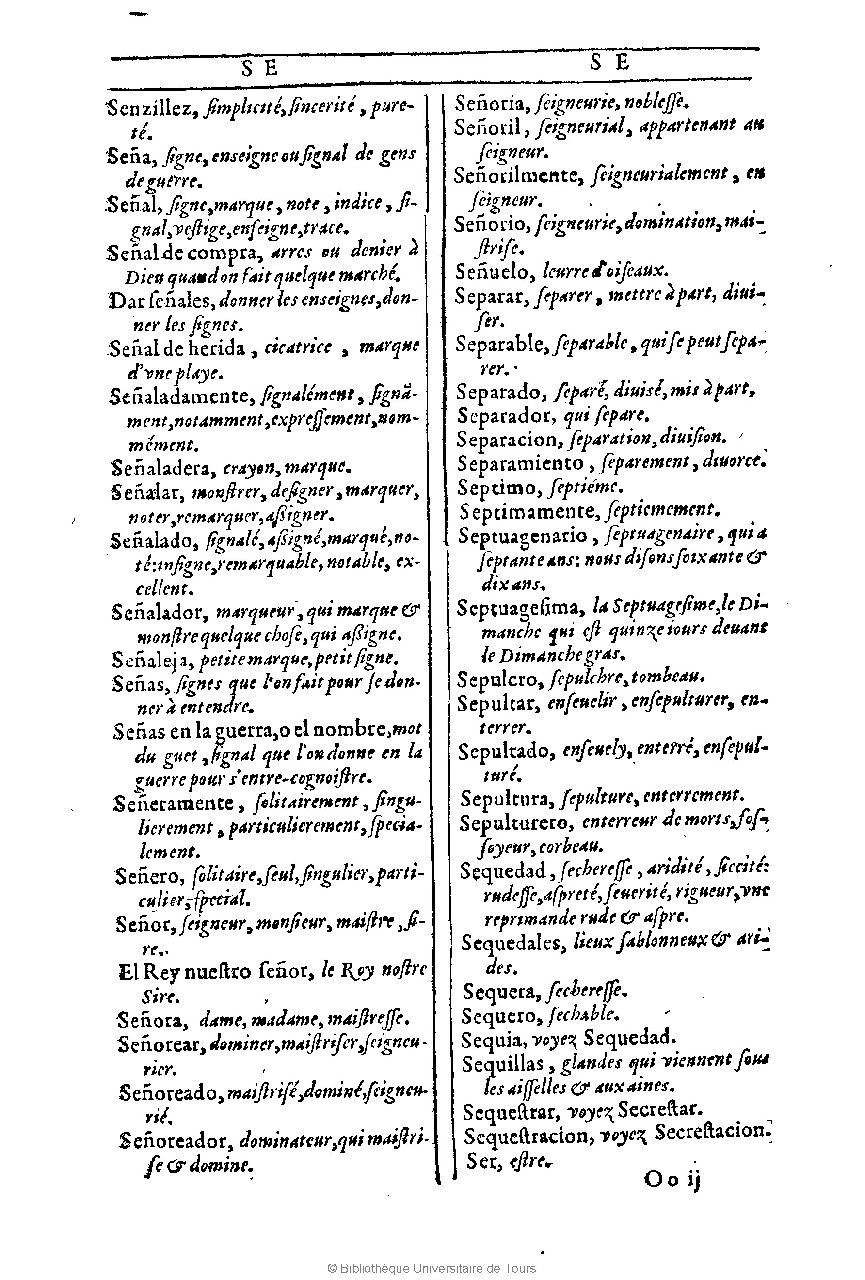 S E
Senzillez, ſimplicité, ſincerité, pure-
té.
Seña, ſigne, enseigne ou ſignal de gens
de guerre.
Señal, ſigne, marque, note, indice, ſi-
gnal, veſtige, enſeigne, trace.
Señal de compra, arres ou denier à
Dieu quand on fait quelque marché.
Dar ſeñales, donner les enseignes, don-
ner les ſignes.
Señal de herida, cicatrice, marque
d'vne playe.
Señaladamente, ſignalément, ſignã-
ment, notamment, expreſſement, nom-
mément.
Señaladera, crayon, marque.
Señalar, monſtrer, deſigner, marquer,
noter, remarquer, aßigner.
Señalado, ſignalé, aßigné, marqué, no-
té: inſigne, remarquable, notable, ex-
cellent.
Señalador, marqueur, qui marque &
monſtre quelque choſe, qui aßigne.
Señaleja, petite marque, petit ſigne.
Señas, ſignes que l'on fait pour ſe don-
ner à entendre.
Señas en la guerra, o el nombre, mot
du guet, ſignal que l'on donne en la
guerre pour s'entre-cognoiſtre.
Señeramente, ſolitairement, ſingu-
lierement, particulierement, ſpecia-
lement.
Señero, ſolitaire, ſeul, ſingulier, parti-
culier, ſpecial.
Señor, ſeigneur, monſieur, maiſtre, ſi-
re.
El Rey nueſtro ſeñor, le Roy noſtre
Sire.
Señora, dame, madame, maiſtreſſe.
Señorear, dominer, maiſtriſer, ſeigneu-
rier.
Señoreado, maiſtriſé, dominé, ſeigneu-
rié.
Señoreador, dominateur, qui maiſtri-
ſe & domine.
S E
Señoria, ſeigneurie, nobleſſe.
Señoril, ſeigneurial, appartenant au
ſeigneur.
Señorilmente, ſeigneurialement, en
ſeigneur.
Señorio, ſeigneurie, domination, mai-
ſtriſe.
Señuelo, leurre d'oiſeaux.
Separar, ſeparer, mettre à part, diui-
ſer.
Separable, ſeparable, qui ſe peut ſepa-
rer.
Separado, ſeparé, diuisé, mis à part.
Separador, qui ſepare.
Separacion, ſeparation, diuiſion.
Separamiento, ſeparement, diuorce.
Septimo, ſeptiéme.
Septimamente, ſeptiémement.
Septuagenario, ſeptuagenaire, qui a
ſeptante ans: nous diſons ſoixante &
dix ans.
Septuageſima, la Septuageſime, le Di-
manche qui eſt quinze iours deuant
le Dimanche gras.
Sepulcro, ſepulchre, tombeau.
Sepultar, enſeuelir, enſepulturer, en-
terrer.
Sepultado, enſeuely, enterré, enſepul-
turé.
Sepultura, ſepulture, enterrement.
Sepulturero, enterreur de morts, foſ-
ſoyeur, corbeau.
Sequedad, ſechereſſe, aridité, ſiccité:
rudeſſe, aſpreté, ſeuerité, rigueur, vne
reprimande rude & aſpre.
Sequedales, lieux ſablonneux & ari-
des.
Sequera, ſechereſſe.
Sequero, ſechable.
Sequia, voyez Sequedad.
Sequillas, glandes qui viennent ſous
les aiſſelles & aux aines.
Sequeſtrar, voyez Secreſtar.
Sequeſtracion, voyez Secreſtacion.
Ser, eſtre.
O o ij
© Bibliothèque Universitaire de Tours